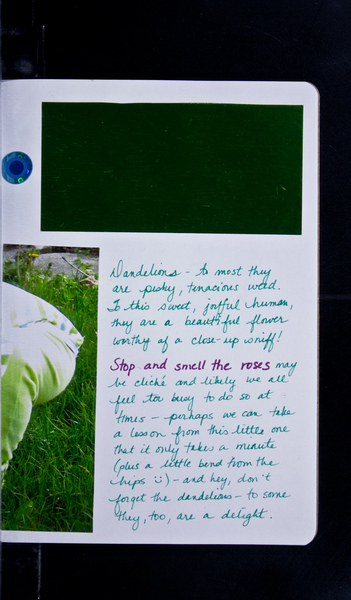 Dandelions - to most they
are pesky, tenacious weed.
To this sweet, joyful human,
they are a beautiful flower
worthy of a close-up sniff!
Stop and smell the roses may
be cliché and likely we all
feel too busy to do so at
times - perhaps we can take
a lesson from this little one
that it only takes a minute
(plus a little bend from the
hips :) - and hey, don't
forget the dandelions - to some
they, too, are a delight.